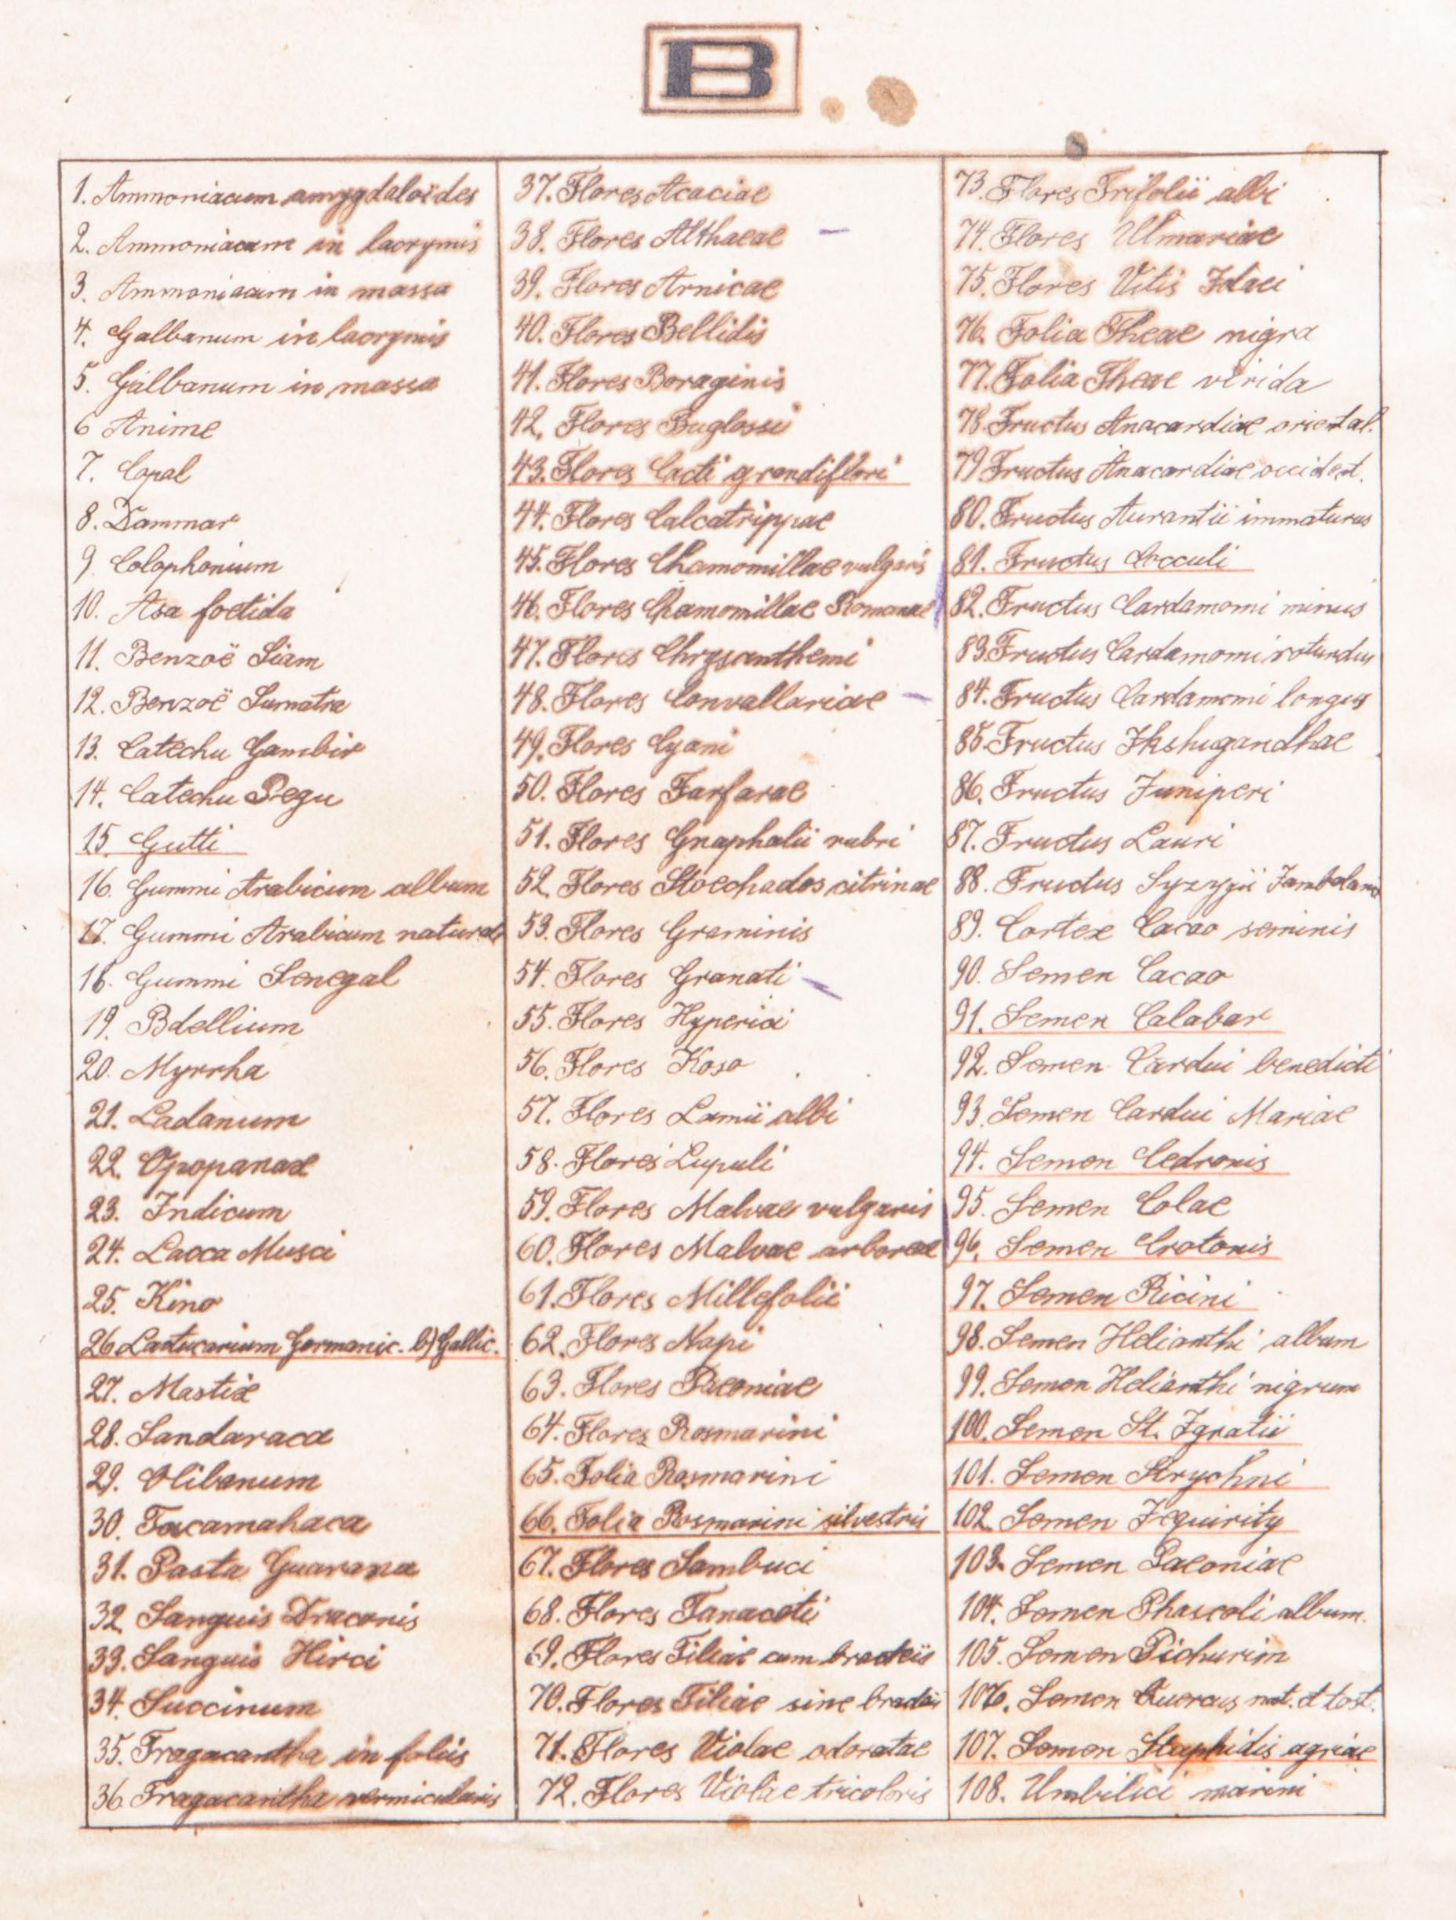 B
1. Ammoniacum amygdaloïdes
2. Ammoniacum in lacrymis
3. Ammoniacum in massa
4. Galbanum in lacrymis
5. Galbanum in massa
6 Anime
7. Copal
8. Dammar
9. Colophonium
10. Asa foetida
11. Benzoë Siam
12. Benzoë Sumatra
13. Catechu Gambir
14. Catechu Pegu
15. Gutti
16. Gummi Arabicum album
17. Gummi Arabicum naturale
18. Gummi Senegal
19. Bdellium
20. Myrrha
21. Ladanum
22. Opopanax
23. Indicum
24. Lacca Musci
25. Kino
26. Lactucarium Germanic. b) Gallic.
27. Mastix
28. Sandaraca
29. Olibanum
30. Tacamahaca
31. Pasta Guarana
32. Sanguis Draconis
33. Sanguis Hirci
34. Succinum
35. Tragacantha in foliis
36. Tragacantha vermicularis
37. Flores Acaciae
38. Flores Althaeae
39. Flores Arnicae
40. Flores Bellidis
41. Flores Boraginis
42. Flores Buglossi
43. Flores Cacti grandiflori
44. Flores Calcatrippae
45. Flores Chamomillae vulgaris
46. Flores Chamomillae Romanae
47. Flores Chrysanthemi
48. Flores Convallariae
49. Flores Cyani
50. Flores Farfarae
51. Flores Gnaphalii rubri
52. Flores Stoechados citrinae
53. Flores Graminis
54. Flores Granati
55. Flores Hyperici
56. Flores Koso
57. Flores Lamii albi
58. Flores Lupuli
59. Flores Malvae vulgaris
60. Flores Malvae arboreae
61. Flores Millefolii
62. Flores Napi
63. Flores Paeoniae
64. Flores Rosmarini
65. Folia Rosmarini
66. Folia Rosmarini silvestris
67. Flores Sambuci
68. Flores Tanaceti
69. Flores Tiliae cum bracteis
70. Flores Tiliae sine bracteis
71. Flores Violae odoratae
72. Flores Violae tricoloris
73. Flores Trifolii albi
74. Flores Ulmariae
75. Flores Vitis Idaei
76. Folia Theae nigra
77. Folia Theae virida
78. Fructus Anacardiae oriental.
79 Fructus Anacardiae occident.
80. Fructus Aurantii immaturus
81. Fructus Cocculi
82. Fructus Cardamomi minus
83. Fructus Cardamomi rotundus
84. Fructus Cardamomi longus
85. Fructus Ikshugandhae
86. Fructus Juniperi
87. Fructus Lauri
88. Fructus Syzygii Jambolani
89. Cortex Cacao seminis
90. Semen Cacao
91. Semen Calabar
92. Semen Cardui benedicti
93. Semen Cardui Mariae
94. Semen Cedronis
95. Semen Colae
96. Semen Crotonis
97. Semen Ricini
98. Semen Helianthi album
99. Semen Helianthi nigrum
100. Semen St. Ignatii
101. Semen Strychni
102. Semen Jequirity
103. Semen Paeoniae
104. Semen Phaseoli album.
105. Semen Pichurim
106. Semen Quercus nat. et tost.
107. Semen Staphidis agriae
108. Umbilici marini